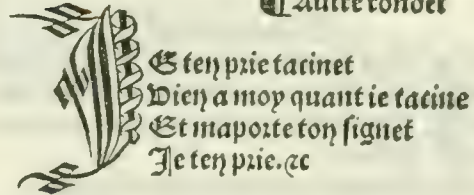 ¶ Autre rondel
IE ten prie tacinet
Vien a moy quant ie tacine
Et maporte ton signet
Je ten prie. ⁊c